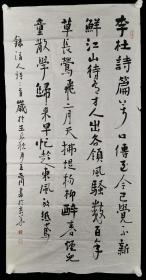 李杜詩篇万口傳至今已覺不新
鮮江山代有才人出各領風騷數百年
草長鶯飛二月天拂堤楊柳醉春煙兒
童散學歸來早忙趁東風放紙鳶
錄清人詩二首